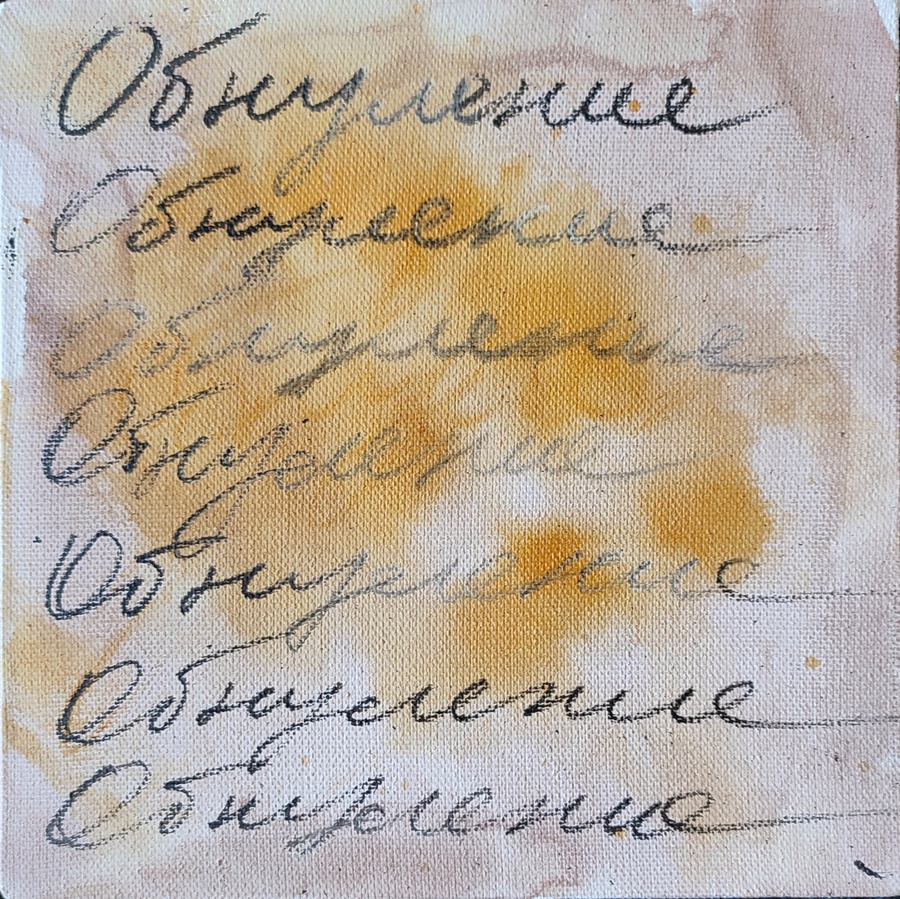 Обнуление
Обнуление
Обнуление
Обнуление
Обнуление
Обнуление
Обнуление